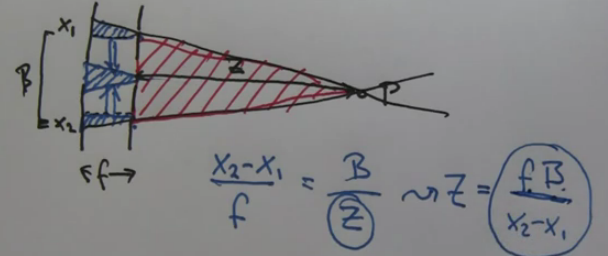 x₁
B
Z
P
x₂
f
x₂-x₁ / f = B / Z ⇝ Z = f.B. / x₂-x₁